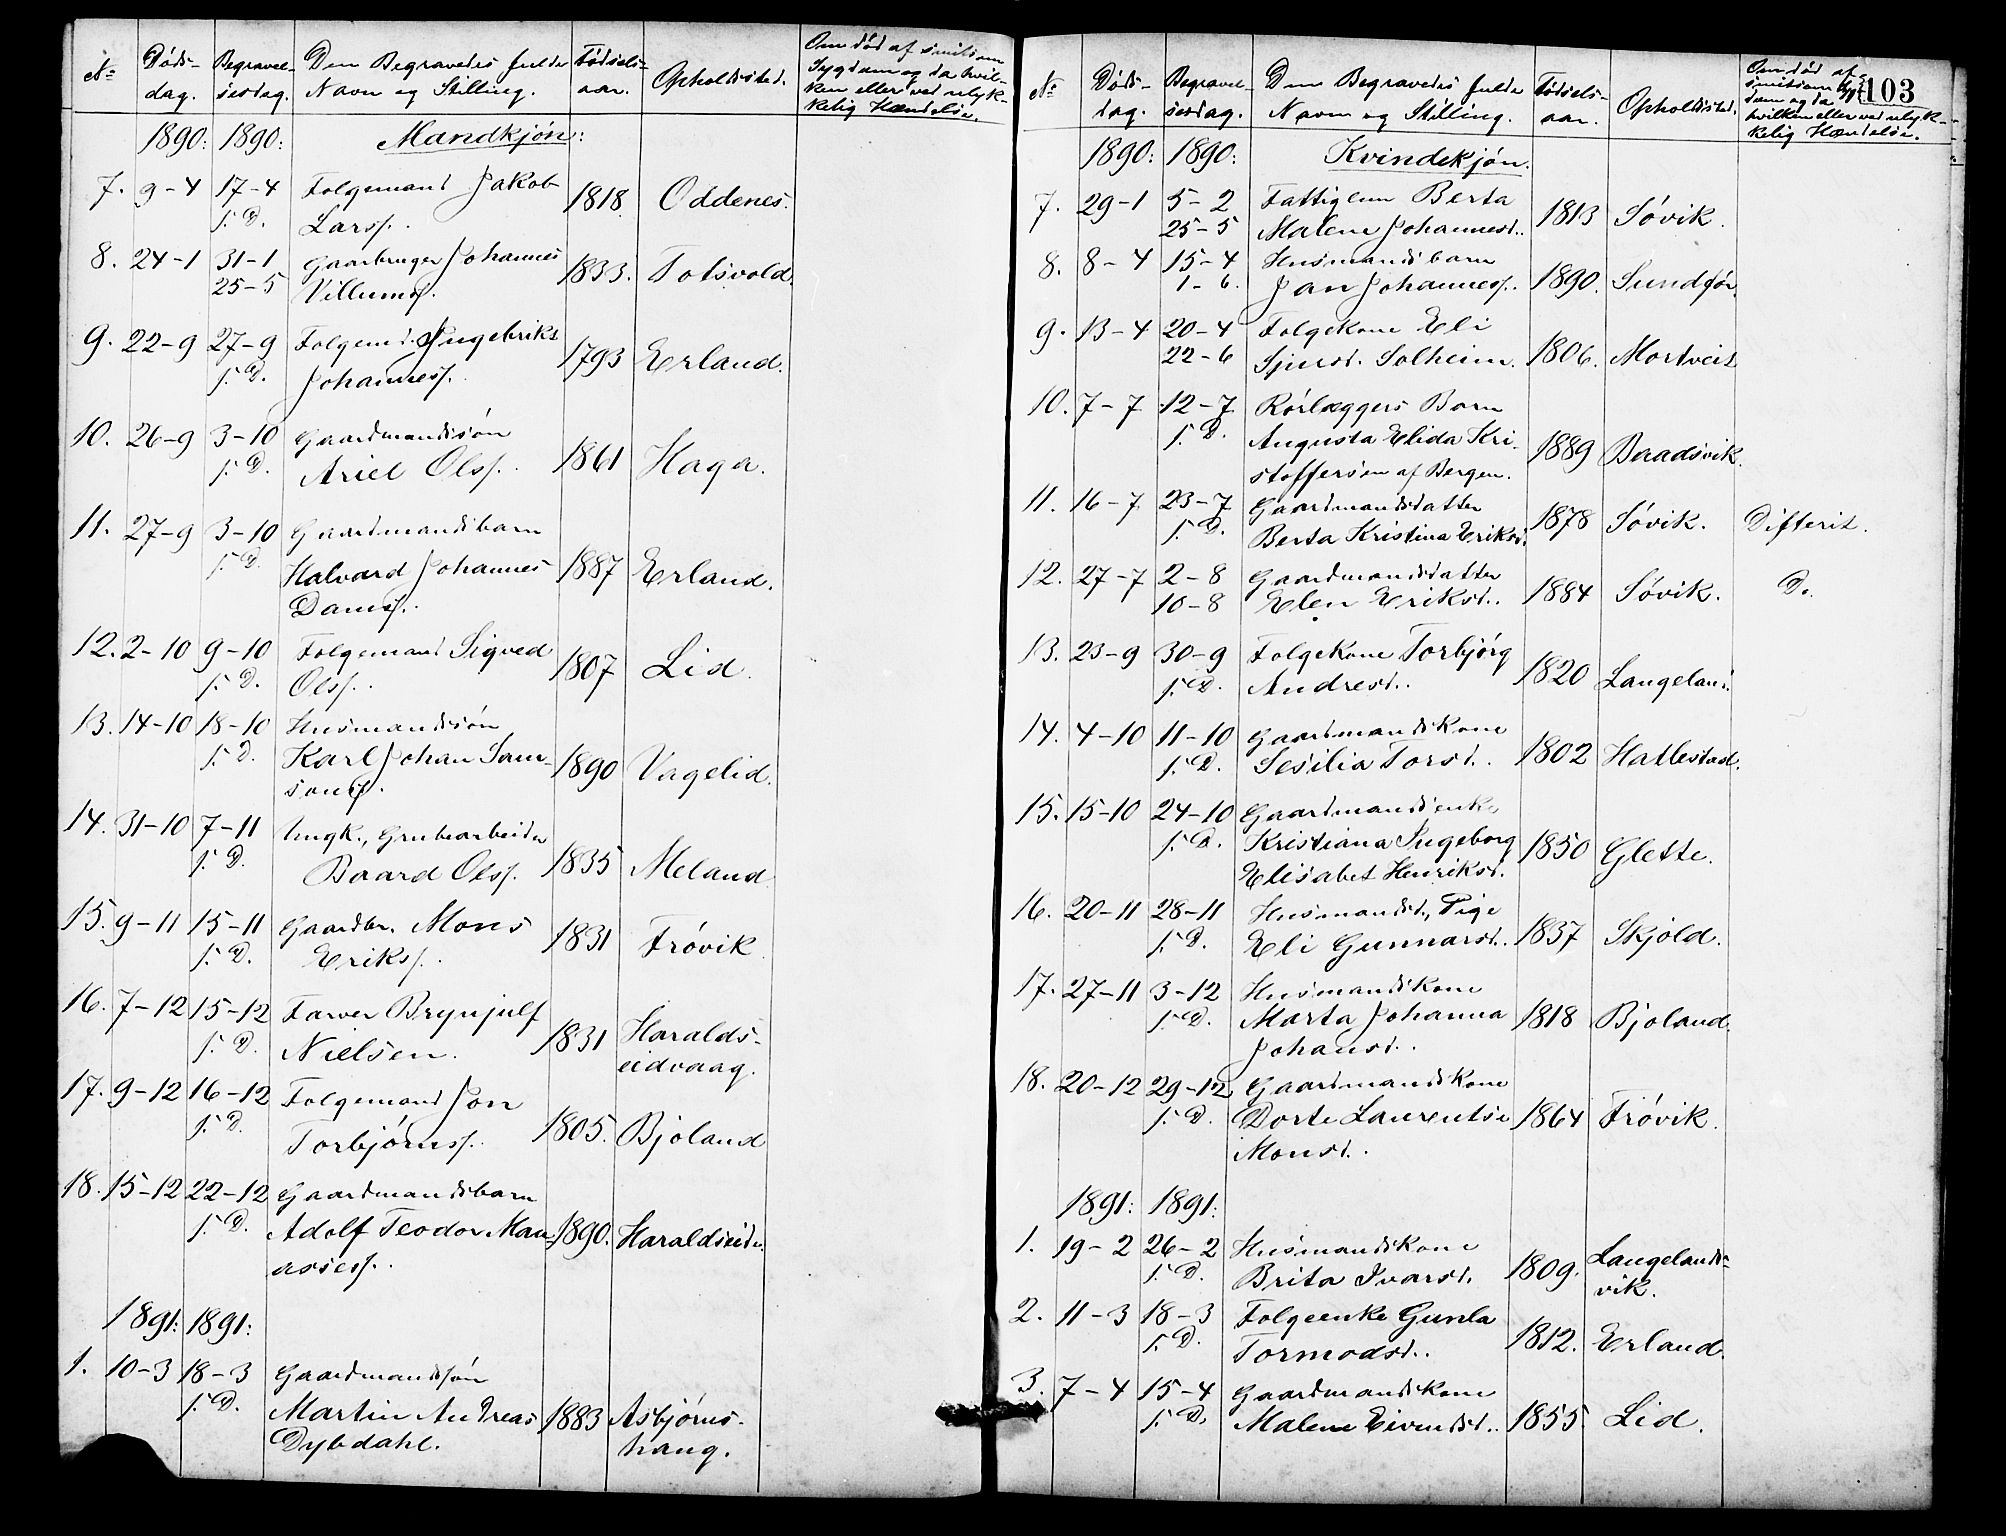 No Döds- Begravel- Den Begravedes fulde Födsels- Opholdssted. Om död af smitsom
dag. sesdag. Navn og Stilling. aar. Sygdom og da hvil-
ken eller ved ulyk-
kelig Hændelse.
1890: 1890: Mandkjön:
7. 9-4 17-4 Folgemand Jakob
s. D. Larss. 1818. Oddenes.
8. 24-1 31-1 Gaarbruger Johannes
25-5 Villumss. 1833. Totsvold.
9. 22-9 27-9 Folgemd. Ingebrikt
s. D. Johanness. 1793 Erland.
10. 26-9 3-10 Gaardmandssön
s. D. Ariel Olss. 1861 Haga.
11. 27-9 3-10 Gaardmandsbarn
s. D. Halvard Johannes 1887 Erland.
Danss.
12. 2-10 9-10 Folgemand Sigved
s. D. Olss. 1807 Lid.
13. 14-10 18-10 Husmandssön
s. D. Karl Johan Sam- 1890 Vagelid.
sons.
14. 31-10 7-11 Ungk., Grubearbeider
s. D. Baard Olss. 1835 Meland.
15. 9-11 15-11 Gaardbr. Mons
s. D. Erikss. 1831 Frövik.
16. 7-12 15-12 Farver Brynjulf
s. D. Nielsen. 1831 Haralds-
eidvaag.
17. 9-12 16-12 Folgemand Jon
s. D. Torbjörnss. 1805. Bjoland
18. 15-12 22-12 Gaardmandsbarn
s. D. Adolf Teodor Man- 1890. Haraldseide.
assess.
1891: 1891:
1. 10-3 18-3 Gaardmandssön
s. D. Martin Andreas 1883 Asbjörns-
Dybdahl. haug.
103
No Döds- Begravel- Den Begravedes fulde Födsels- Opholdssted. Om död af
dag. sesdag. Navn og Stilling. aar. smitsom Syg-
dom og da
hvilken eller ved ulyk-
kelig Hændelse.
1890: 1890: Kvindekjön.
7. 29-1 5-2 Fattiglem Berta
25-5 Malene Johannesd. 1813 Sövik.
8. 8-4 15-4 Husmandsbarn
1-6. Jan Johanness. 1890. Sundför.
9. 13-4 20-4 Folgekone Eli
22-6 Sjursd. Solheim. 1806. Mortveit
10. 7-7 12-7 Rörlæggers Barn
s. D. Augusta Elida Kri- 1889 Baadsvik.
stoffersen af Bergen.
11. 16-7 23-7 Gaardmandsdatter
s. D. Berta Kristina Eriksd. 1878 Sövik. Difterit.
12. 27-7 2-8 Gaardmandsdatter
10-8 Elen Eriksd. 1884 Sövik. Do.
13. 23-9 30-9 Folgekone Torbjörg
s. D. Andresd. 1820 Langeland.
14. 4-10 11-10 Gaardmandskone
s. D. Sesilia Torsd. 1802 Hatlestad.
15. 15-10 24-10 Gaardmandsenke
s. D. Kristiana Ingeborg 1850 Glette.
Elisabet Henriksd.
16. 20-11 28-11 Husmandsd., Pige
s. D. Eli Gunnarsd. 1837 Skjold.
17. 27-11 3-12 Husmandskone
s. D. Marta Johanna 1818 Bjoland.
Johansd.
18. 20-12 29-12 Gaardmandskone
s. D. Dorte Laurentse 1864 Frövik.
Monsd.
1891: 1891:
1. 19-2 26-2 Husmandskone Langelands-
s. D. Brita Ivarsd. 1809. vik.
2. 11-3 18-3 Folgeenke Gunla
s. D. Tormodsd. 1812. Erland.
3. 7-4 15-4 Gaardmandskone
s. D. Malene Eivindsd. 1855. Lid.